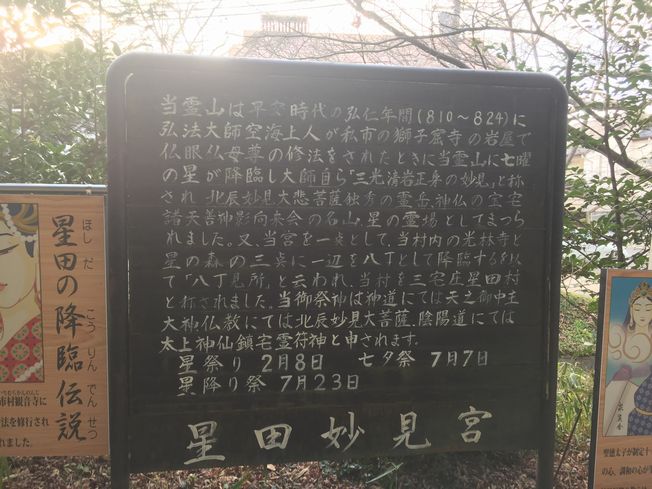 当霊山は平安時代の弘仁年間(810〜824)に
弘法大師空海上人が私市の獅子窟寺の岩屋で
仏眼仏母尊の修法をされたときに当霊山に七曜
の星が降臨し大師自ら「三光清岩正身の妙見」と称
され 北辰妙見大悲菩薩独秀の霊岳、神仏の宝宅
諸天善神影向来会の名山、星の霊場としてまつら
れました。又、当宮を一点として、当村内の光林寺と
星の森の三点に一辺を八丁として降臨するを以
て「八丁見所」と云われ、当村を三宅庄星田村
と称されました。当御祭神は神道にては天之御中主
大神仏教にては北辰妙見大菩薩、陰陽道にては
太上神仙鎮宅霊符神と申されます。
星祭り 2月8日 七夕祭 7月7日
星降り祭 7月23日
星田妙見宮
星田の降臨伝説
ほしだ
こうりんでんせつ
市村観音寺に
法を修行され
れました。
聖徳太子が制定十
の心、調和の心が